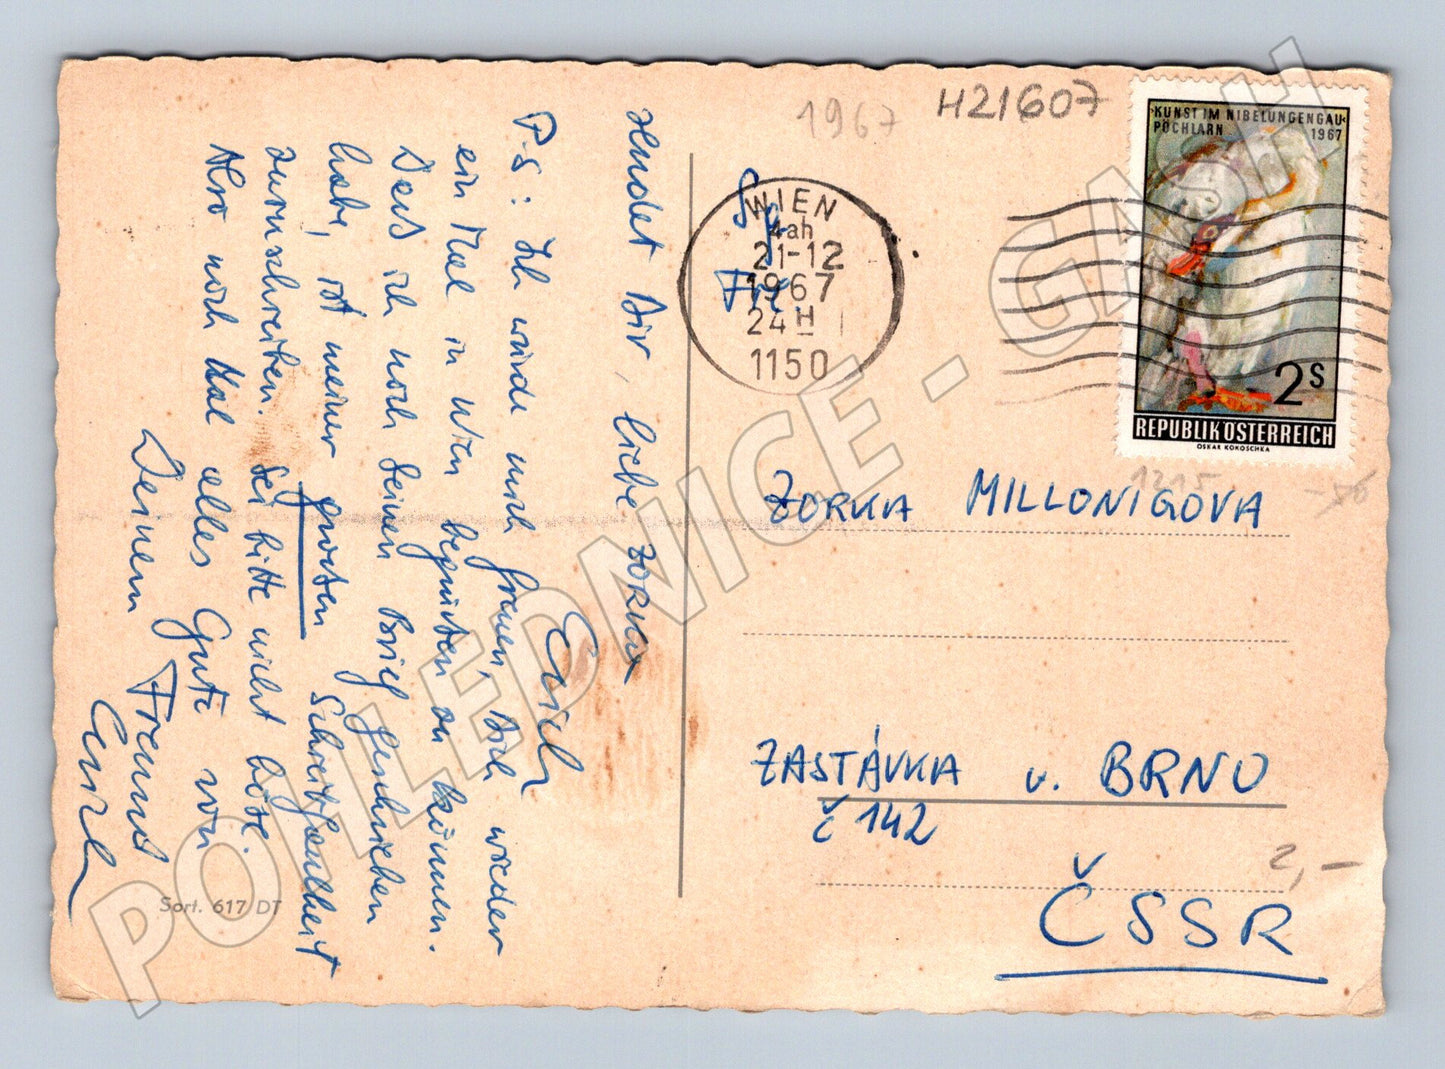 sendet Dir, liebe ZORKA
Erich
P.S: Ich würde mich freuen, Dich wieder
ein Mal in Wien begrüßen zu können.
Dass ich noch keinen Brief geschrieben
habe, ist meiner großen Schreibfaulheit
zuzuschreiben. Sei bitte nicht böse.
Also noch Mal alles Gute von
Deinem Freund
Erich
Sort. 617 DT
1967
H21607
WIEN
4ah
21-12
1967
24H
1150
KUNST IM NIBELUNGENGAU
PÖCHLARN 1967
2S
REPUBLIK ÖSTERREICH
OSKAR KOKOSCHKA
1215
ZORKA MILLONIGOVA
ZASTÁVKA u. BRNO
č 142
2,-
ČSSR
POHLEDNICE - GASH